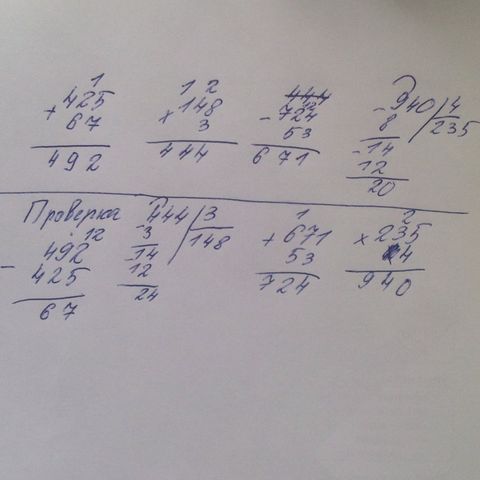 1
+ 425
67
492
1 2
× 148
3
444
444
12
- 724
53
671
940 | 4
- 8 235
- 14
12
20
Проверка
. 12
492
- 425
67
444 | 3
- 3 148
- 14
12
24
1
+ 671
53
724
2
× 235
4
940